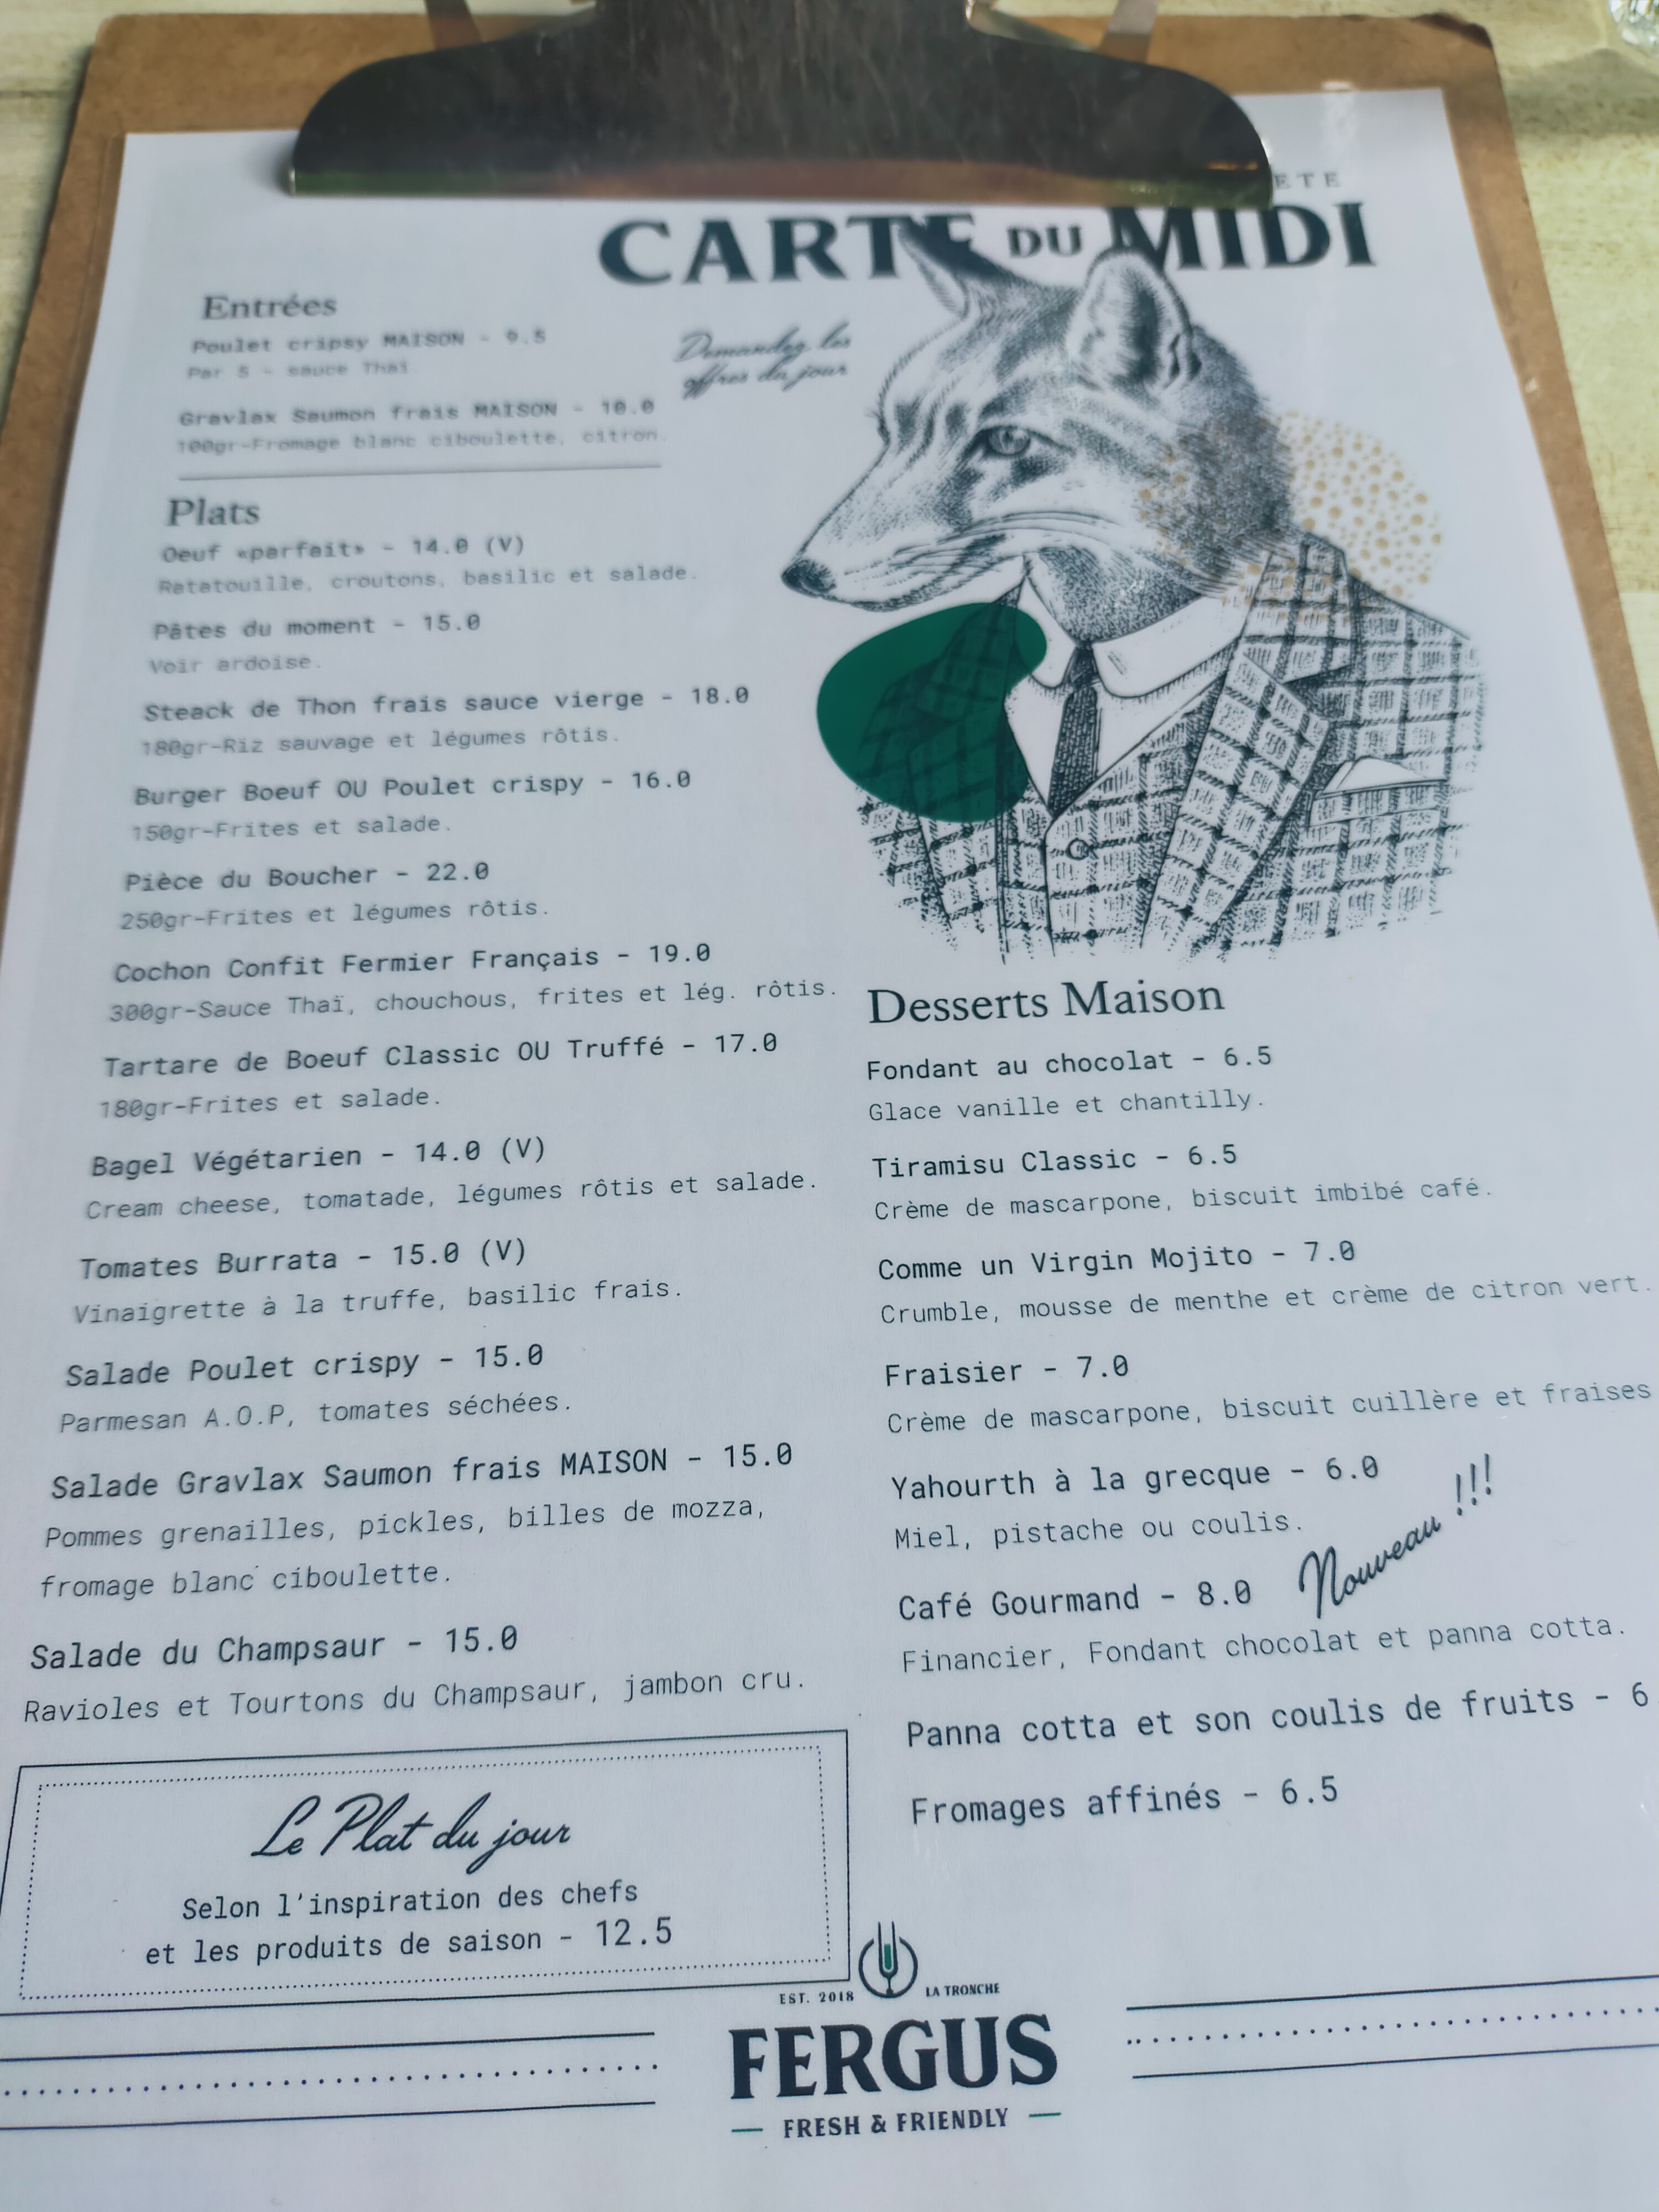 ETE
CARTE DU MIDI
Demandez les
offres du jour
Entrées
Poulet cripsy MAISON - 9.5
Par 5 - sauce Thaï.
Gravlax Saumon frais MAISON - 10.0
100gr-Fromage blanc ciboulette, citron.
Plats
Oeuf «parfait» - 14.0 (V)
Ratatouille, croutons, basilic et salade.
Pâtes du moment - 15.0
Voir ardoise.
Steack de Thon frais sauce vierge - 18.0
180gr-Riz sauvage et légumes rôtis.
Burger Boeuf OU Poulet crispy - 16.0
150gr-Frites et salade.
Pièce du Boucher - 22.0
250gr-Frites et légumes rôtis.
Cochon Confit Fermier Français - 19.0
300gr-Sauce Thaï, chouchous, frites et lég. rôtis.
Tartare de Boeuf Classic OU Truffé - 17.0
180gr-Frites et salade.
Bagel Végétarien - 14.0 (V)
Cream cheese, tomatade, légumes rôtis et salade.
Tomates Burrata - 15.0 (V)
Vinaigrette à la truffe, basilic frais.
Salade Poulet crispy - 15.0
Parmesan A.O.P, tomates séchées.
Salade Gravlax Saumon frais MAISON - 15.0
Pommes grenailles, pickles, billes de mozza,
fromage blanc ciboulette.
Salade du Champsaur - 15.0
Ravioles et Tourtons du Champsaur, jambon cru.
Le Plat du jour
Selon l'inspiration des chefs
et les produits de saison - 12.5
Desserts Maison
Fondant au chocolat - 6.5
Glace vanille et chantilly.
Tiramisu Classic - 6.5
Crème de mascarpone, biscuit imbibé café.
Comme un Virgin Mojito - 7.0
Crumble, mousse de menthe et crème de citron vert.
Fraisier - 7.0
Crème de mascarpone, biscuit cuillère et fraises
Yahourth à la grecque - 6.0
Miel, pistache ou coulis.
Nouveau !!!
Café Gourmand - 8.0
Financier, Fondant chocolat et panna cotta.
Panna cotta et son coulis de fruits - 6
Fromages affinés - 6.5
EST. 2018 LA TRONCHE
FERGUS
FRESH & FRIENDLY